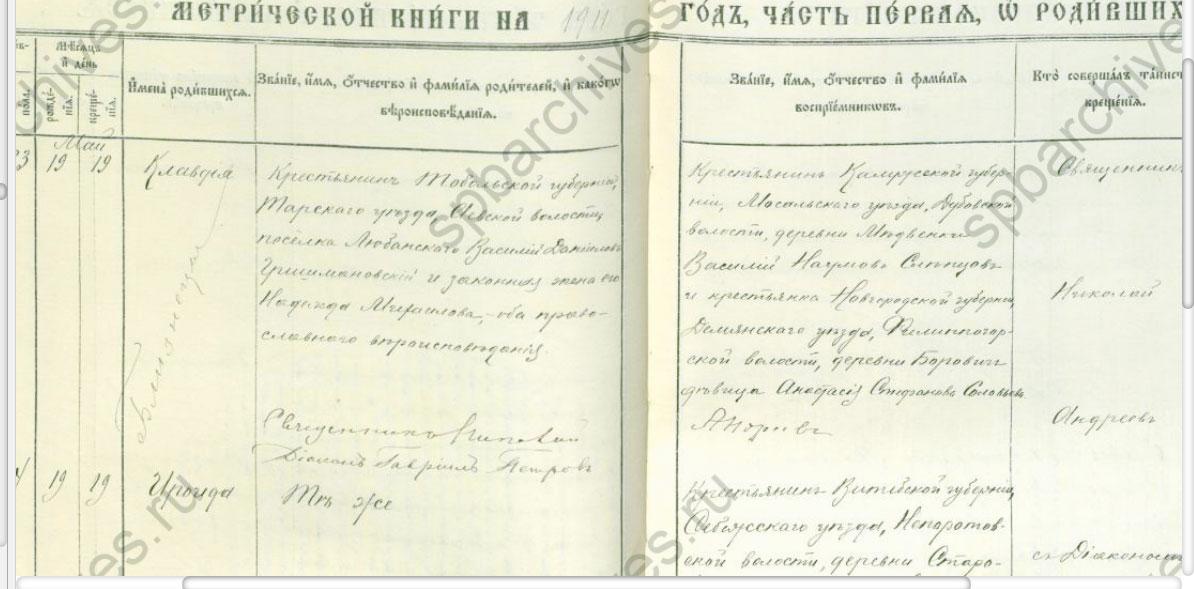 МЕТРИ́ЧЕСКОЙ КНИ́ГИ НА 1911 ГО́ДЪ, ЧА́СТЬ ПЕ́РВАѦ, Ѡ РОДИ́ВШИХ
Мѣ́сѧцъ
и҆ де́нь
рожде́-
нїѧ.
креще́-
нїѧ.
И҆мена̀ роди́вшихсѧ.
Зва́нїе, и҆́мѧ, ѻ҆́тчество и҆ фами́лїѧ роди́телей, и҆ како́гѡ
вѣроисповѣ́данїѧ.
Зва́нїе, и҆́мѧ, ѻ҆́тчество и҆ фами́лїѧ
воспрїе́мникѡвъ.
Кто̀ соверша́лъ та́инст
креще́нїѧ.
Май
3 19 19
Клавдія
Крестьянинъ Тобольской губерніи,
Тарскаго уѣзда, Аевской волости,
посёлка Любанскаго Василій Даниловъ
Гришмановскій и законная жена его
Надежда Михаилова, – оба право-
славнаго вѣроисповѣданія.
Священникъ Николай
Діаконъ Гавріилъ Петровъ
Близнецы
Крестьянинъ Калужской губер-
ніи, Мосальскаго уѣзда, Дубовской
волости, деревни
Василій Наумовъ Слѣпцовъ
и крестьянка Новгородской губерніи,
Демянскаго уѣзда, Филиппогор-
ской волости, деревни Боровичи
дѣвица Анастасія Стефанова Соловьева
Андреевъ
Священникъ
Николай
Андреевъ
4 19 19
Ираида
Тѣ же
Крестьянинъ Витебской губерніи,
Себежскаго уѣзда, Непоротов-
ской волости, деревни Старо-
съ Діакономъ
spbarchives.ru